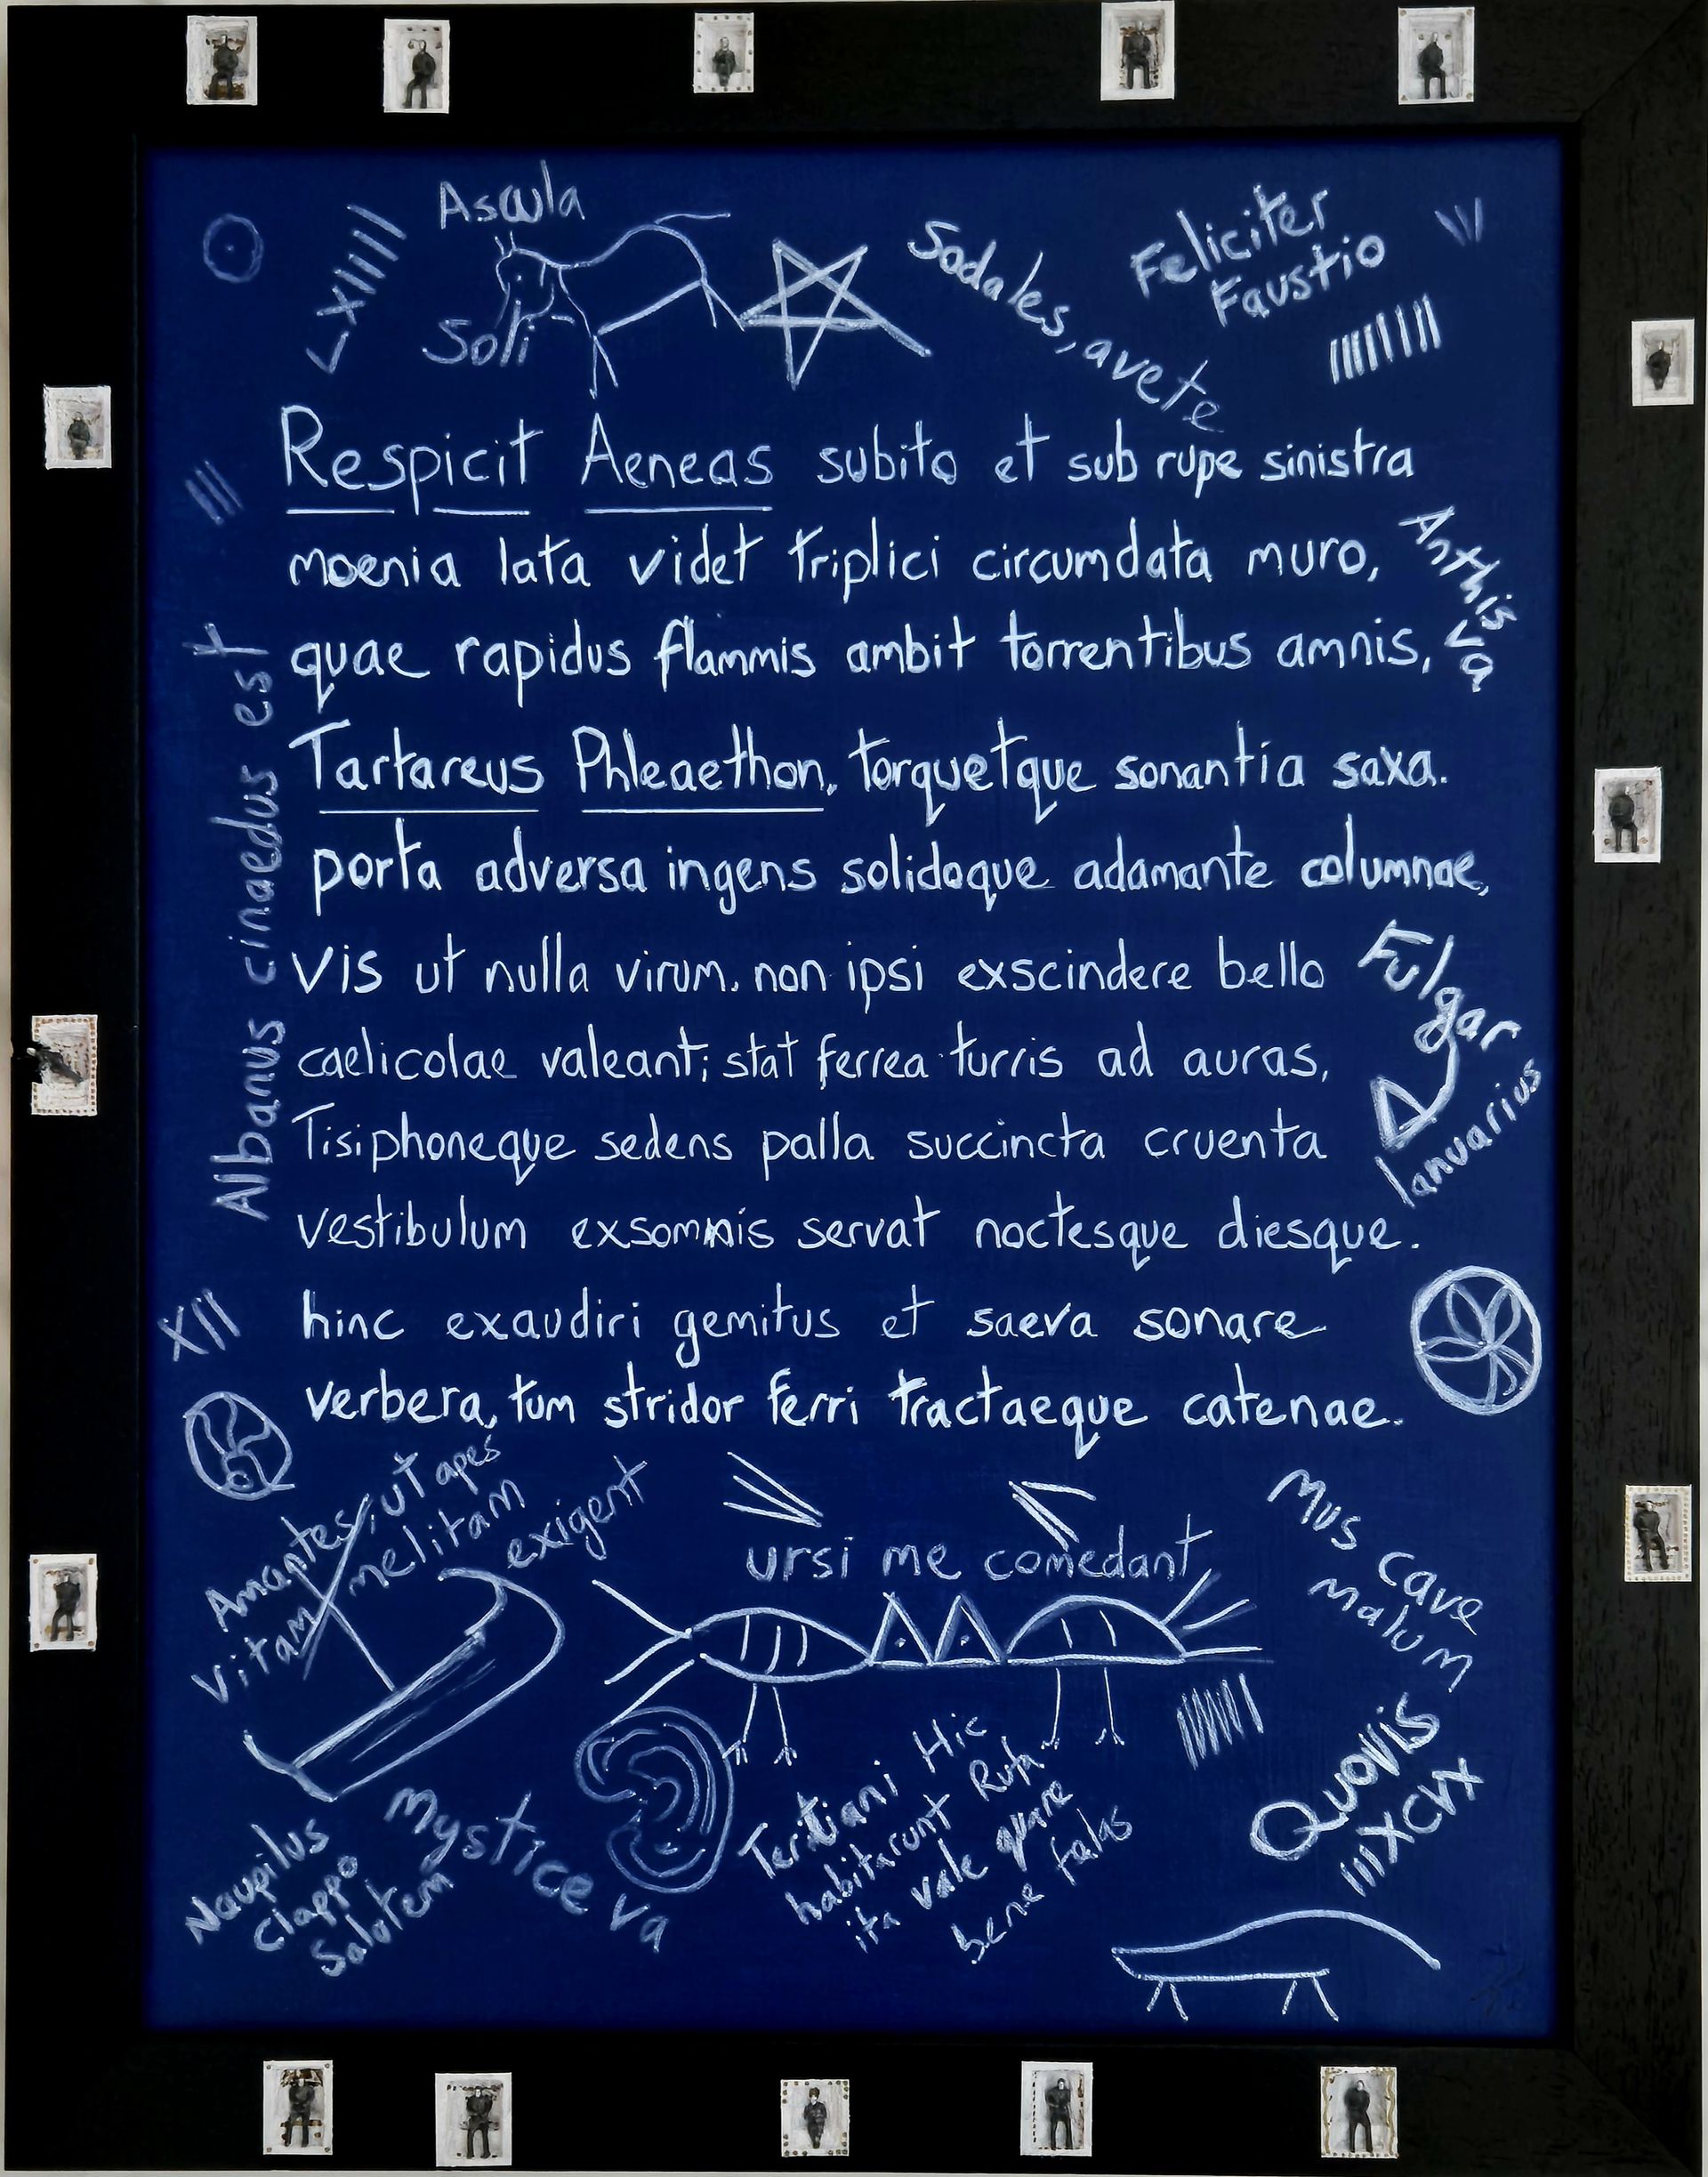 Ascula
LXIIII
Soli
Sodales, avete
Feliciter
Faustio
Respicit Aeneas subito et sub rupe sinistra
moenia lata videt triplici circumdata muro,
quae rapidus flammis ambit torrentibus amnis,
Tartareus Phleaethon, torquetque sonantia saxa.
porta adversa ingens solidoque adamante columnae,
vis ut nulla virum, non ipsi exscindere bello
caelicolae valeant; stat ferrea turris ad auras,
Tisiphoneque sedens palla succincta cruenta
vestibulum exsomnis servat noctesque diesque.
hinc exaudiri gemitus et saeva sonare
verbera, tum stridor ferri tractaeque catenae.
Anthis
va
Albanus cinaedus est
Fulgar
Ianuarius
XII
Amantes, ut apes
vitam melitam
exigent
ursi me comedant
Mus cave
malum
Quovis
IIIXCVX
Mystice va
Naupilus
Clappo
Salotem
Teritiani Hic
habitarunt Rufa
ita vale quare
bene felas